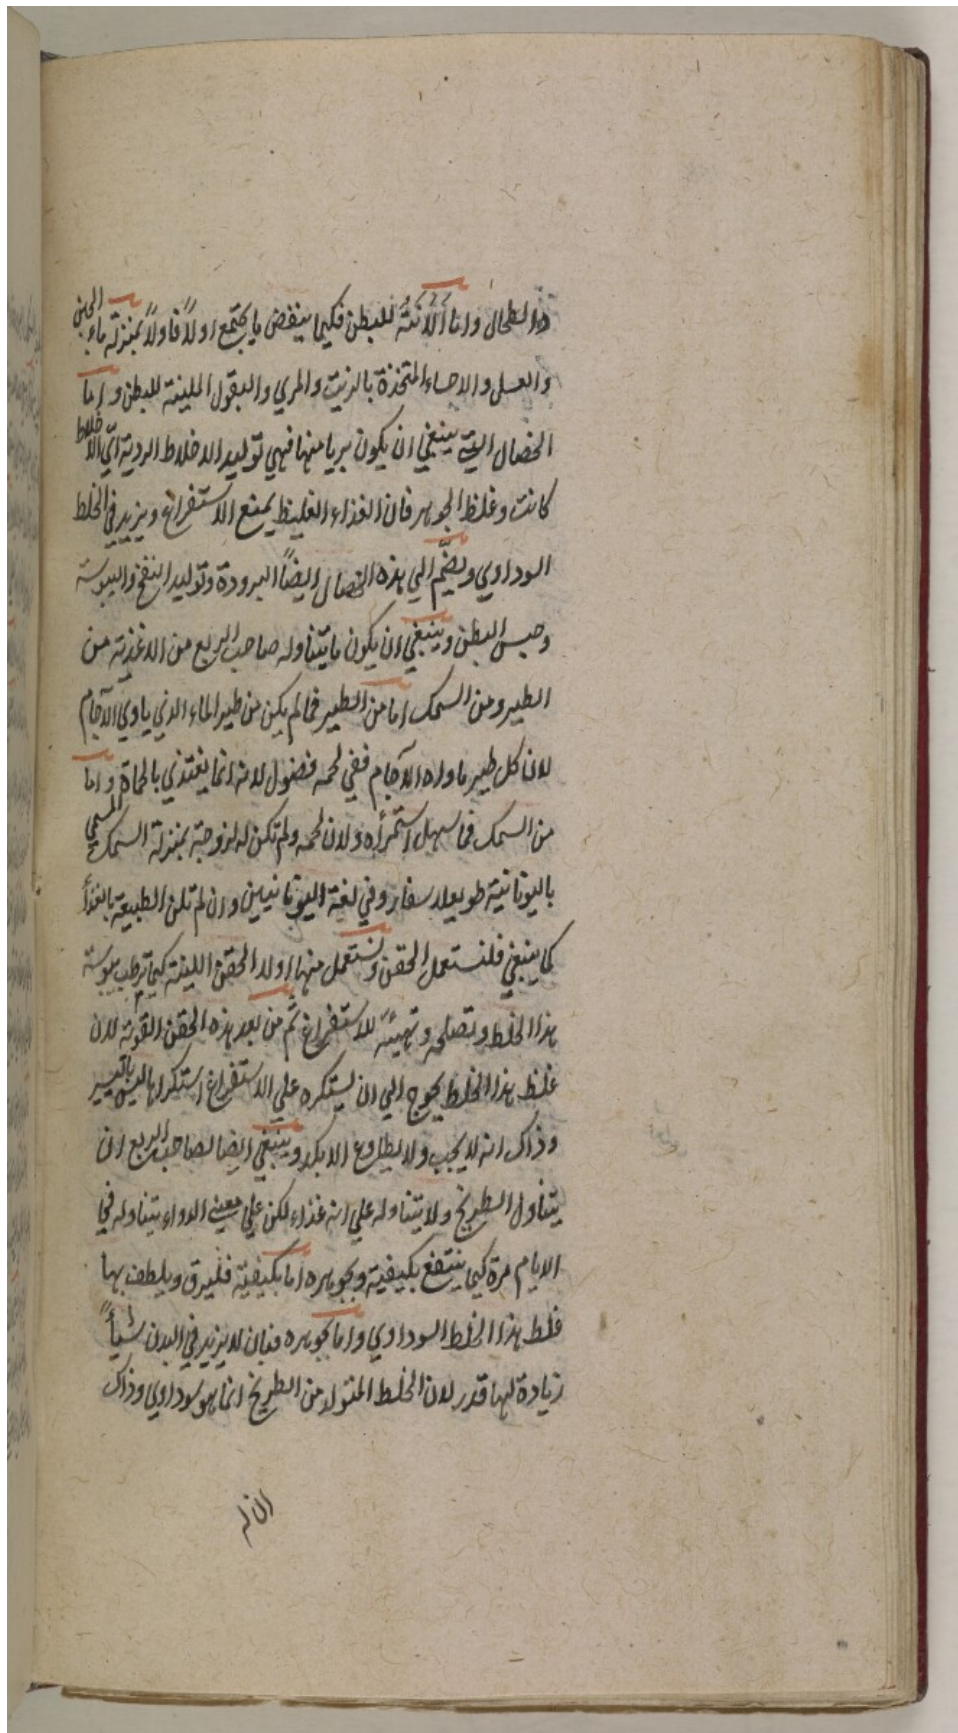 والطحال واما اللانته للبطن فكيما ينفض ما يجتمع اولاً فاولاً بمنزلة ماء الجبن
والعسل والاحساء المتخذة بالزيت والمري والبقول الملينة للبطن واما
الخصال التي ينبغي ان يكون بريا منها فهي توليد الاخلاط الردية ايّ الاخلاط
كانت وغلظ الجوهر فان الغذاء الغليظ يمنع الاستفراغ ويزيد في الخلط
السوداوي ويضّم الي هذه الخصال ايضاً البرودة وتوليد النفخ واليبوسة
وحبس البطن وينبغي ان يكون ما يتناوله صاحب الربع من الاغذية من
الطير ومن السمك اما من الطير فما لم يكن من طير الماء الذي ياوي الآجام
لان كل طير ماواه الآجام ففي لحمه فضول لانه انما يغتذي بالحماة واما
من السمك فما سهل استمرأه ولان لحمه ولم تكن له لزوجة بمنزلة السمك المسمي
باليونانية وفي لغة اليونانيين وان لم تلن الطبيعة بالغذأ
كما ينبغي فلنستعمل الحقن ونستعمل منها اولا الحقن اللينة كيما ترطب يبوسة
هذا الخلط وتصلحه وتهيئه للاستفراغ ثم من بعد هذه الحقن القوية لان
غلظ هذا الخلط يحوج الي ان يستكره علي الاستفراغ استكراها ليس باليسير
وذاك انه لا يجيب ولا يطاوع الا بكد وينبغي ايضا لصاحب الربع ان
يتناول الطريخ ولا يتناوله علي انه غذاء لكن علي معني الدواء يتناوله في
الايام مرة كيما ينتفع بكيفيته وبجوهره اما بكيفيته فليرق ويلطف بها
غلظ هذا الخلط السوداوي واما بجوهره فبان لا يزيد في البدن شيأً
زيادة لها قدر لان الخلط المتولد من الطريخ انما هو سوداوي وذاك